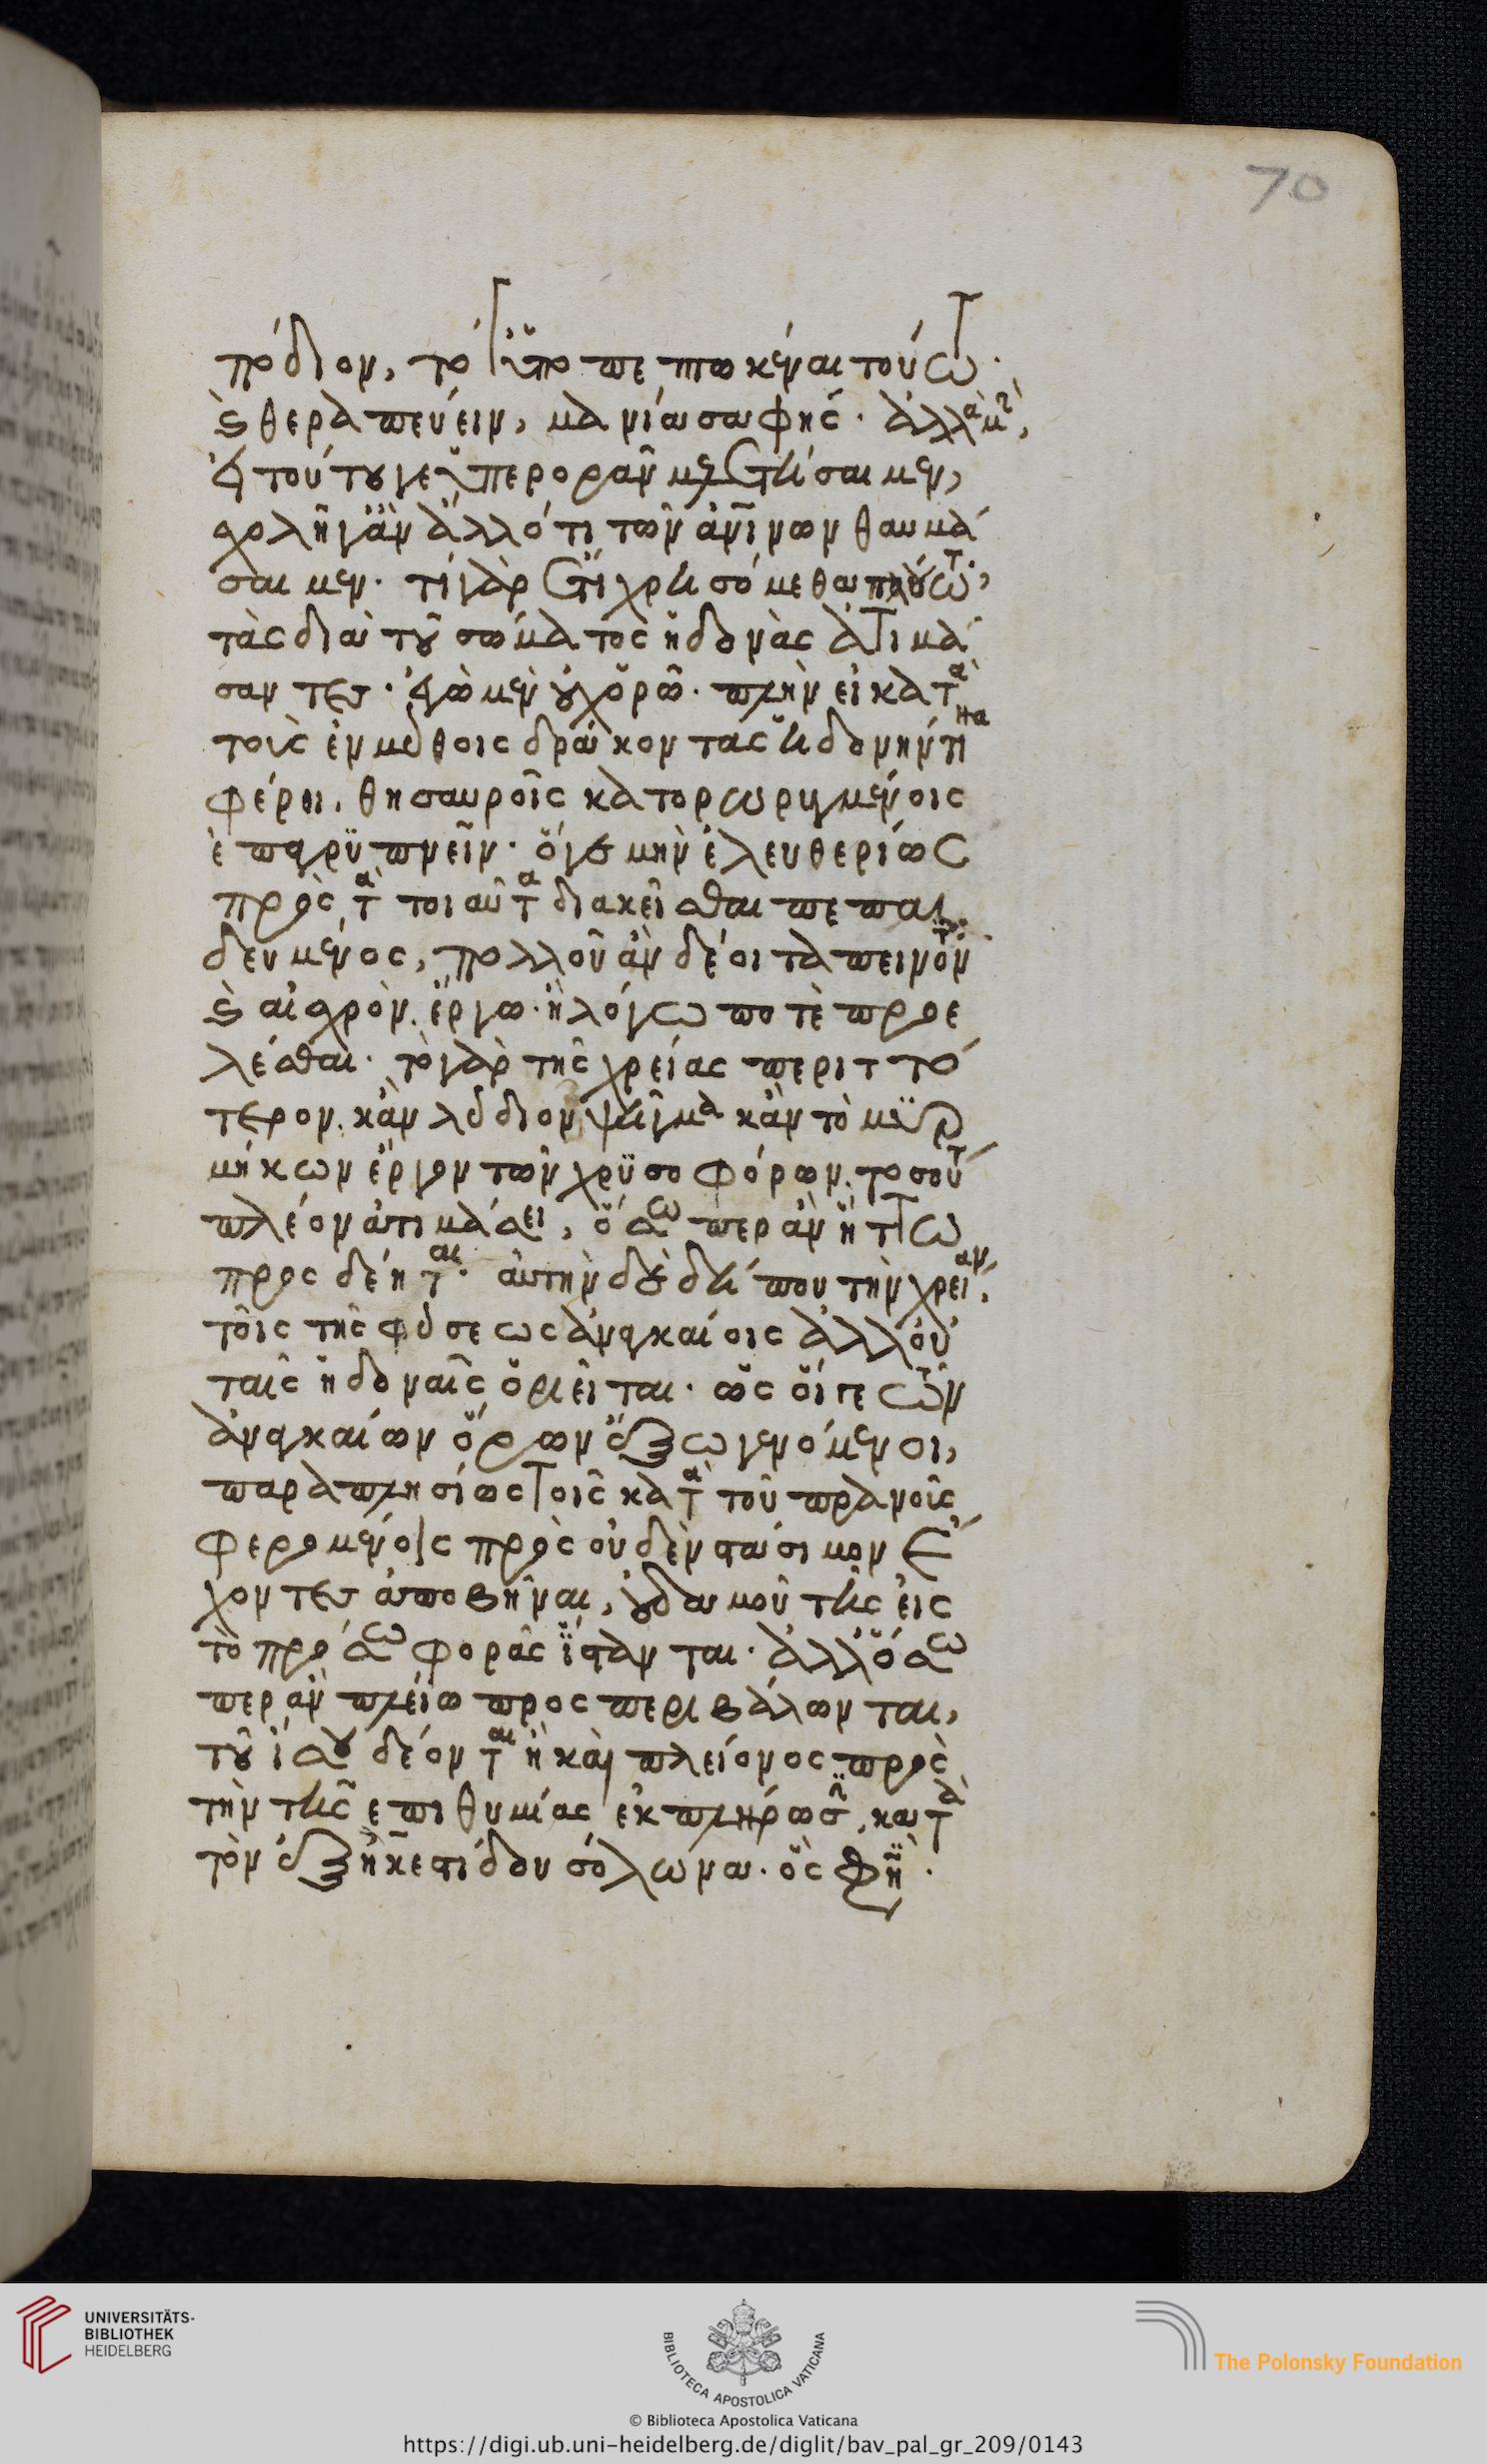 70
πόδιον, τὸ ὑποπεπτωκέναι τούτω.
καὶ θεραπεύειν, μανία σαφής. ἀλλὰ μὴν,
ἐὰν τούτου γε ὑπερορᾶν μελετήσαιμεν,
σχολῆ γ' ἂν ἄλλό τι τῶν ἀνθρωπίνων θαυμά
σαιμεν. τί γὰρ ἔτι χρησόμεθα πλούτω,
τὰς διὰ τοῦ σώματος ἡδονὰς ἀτιμά
σαντες. ἐγὼ μὲν οὐχ ὁρῶ. πλὴν εἰ κατὰ
τοὺς ἐν μύθοις δράκοντας ἡδονήν τινα
φέρει, θησαυροῖς κατορωρυγμένοις
ἐπαγρυπνεῖν. ὅ γε μὴν ἐλευθερίως
πρὸς τὰ τοιαῦτα διακεῖσθαι πεπαι
δευμένος, πολλοῦ ἂν δέοι ταπεινόν τι
καὶ αἰσχρὸν. ἔργω. ἢ λόγω ποτὲ προε
λέσθαι. τὸ γὰρ τῆς χρείας περιττό
τερον. κἂν λύδιον ψῆγμα κἂν τὸ μυρ
μήκων ἔργον τῶν χρυσοφόρων. τοσούτω
πλέον ἀτιμάσει, ὅσωπερ ἂν ἧττω
προσδέηται. αὐτὴν δὲ δήπου τὴν χρείαν,
τοῖς τῆς φύσεως ἀναγκαίοις ἀλλ' οὐ
ταῖς ἡδοναῖς ὁριεῖται. ὡς οἵ γε τῶν
ἀναγκαίων ὅρων ἔξω γενόμενοι,
παραπλησίως τοῖς κατὰ τοῦ πρανοῦς
φερομένοις πρὸς οὐδὲν στάσιμον ἔ
χοντες ἀποβῆναι, οὐδαμοῦ τῆς εἰς
τὸ πρόσω φορᾶς ἵστανται. ἀλλ' ὅσω
περ ἂν πλείω προσπεριβάλωνται,
τοῦ ἴσου δέονται ἢ καὶ πλείονος πρὸς
τὴν τῆς ἐπιθυμίας ἐκπλήρωσιν, κατὰ
τὸν ἐξηκεστίδου σόλωνα. ὅς φησι.
UNIVERSITÄTS-
BIBLIOTHEK
HEIDELBERG
BIBLIOTECA APOSTOLICA VATICANA
The Polonsky Foundation
© Biblioteca Apostolica Vaticana
https://digi.ub.uni-heidelberg.de/diglit/bav_pal_gr_209/0143